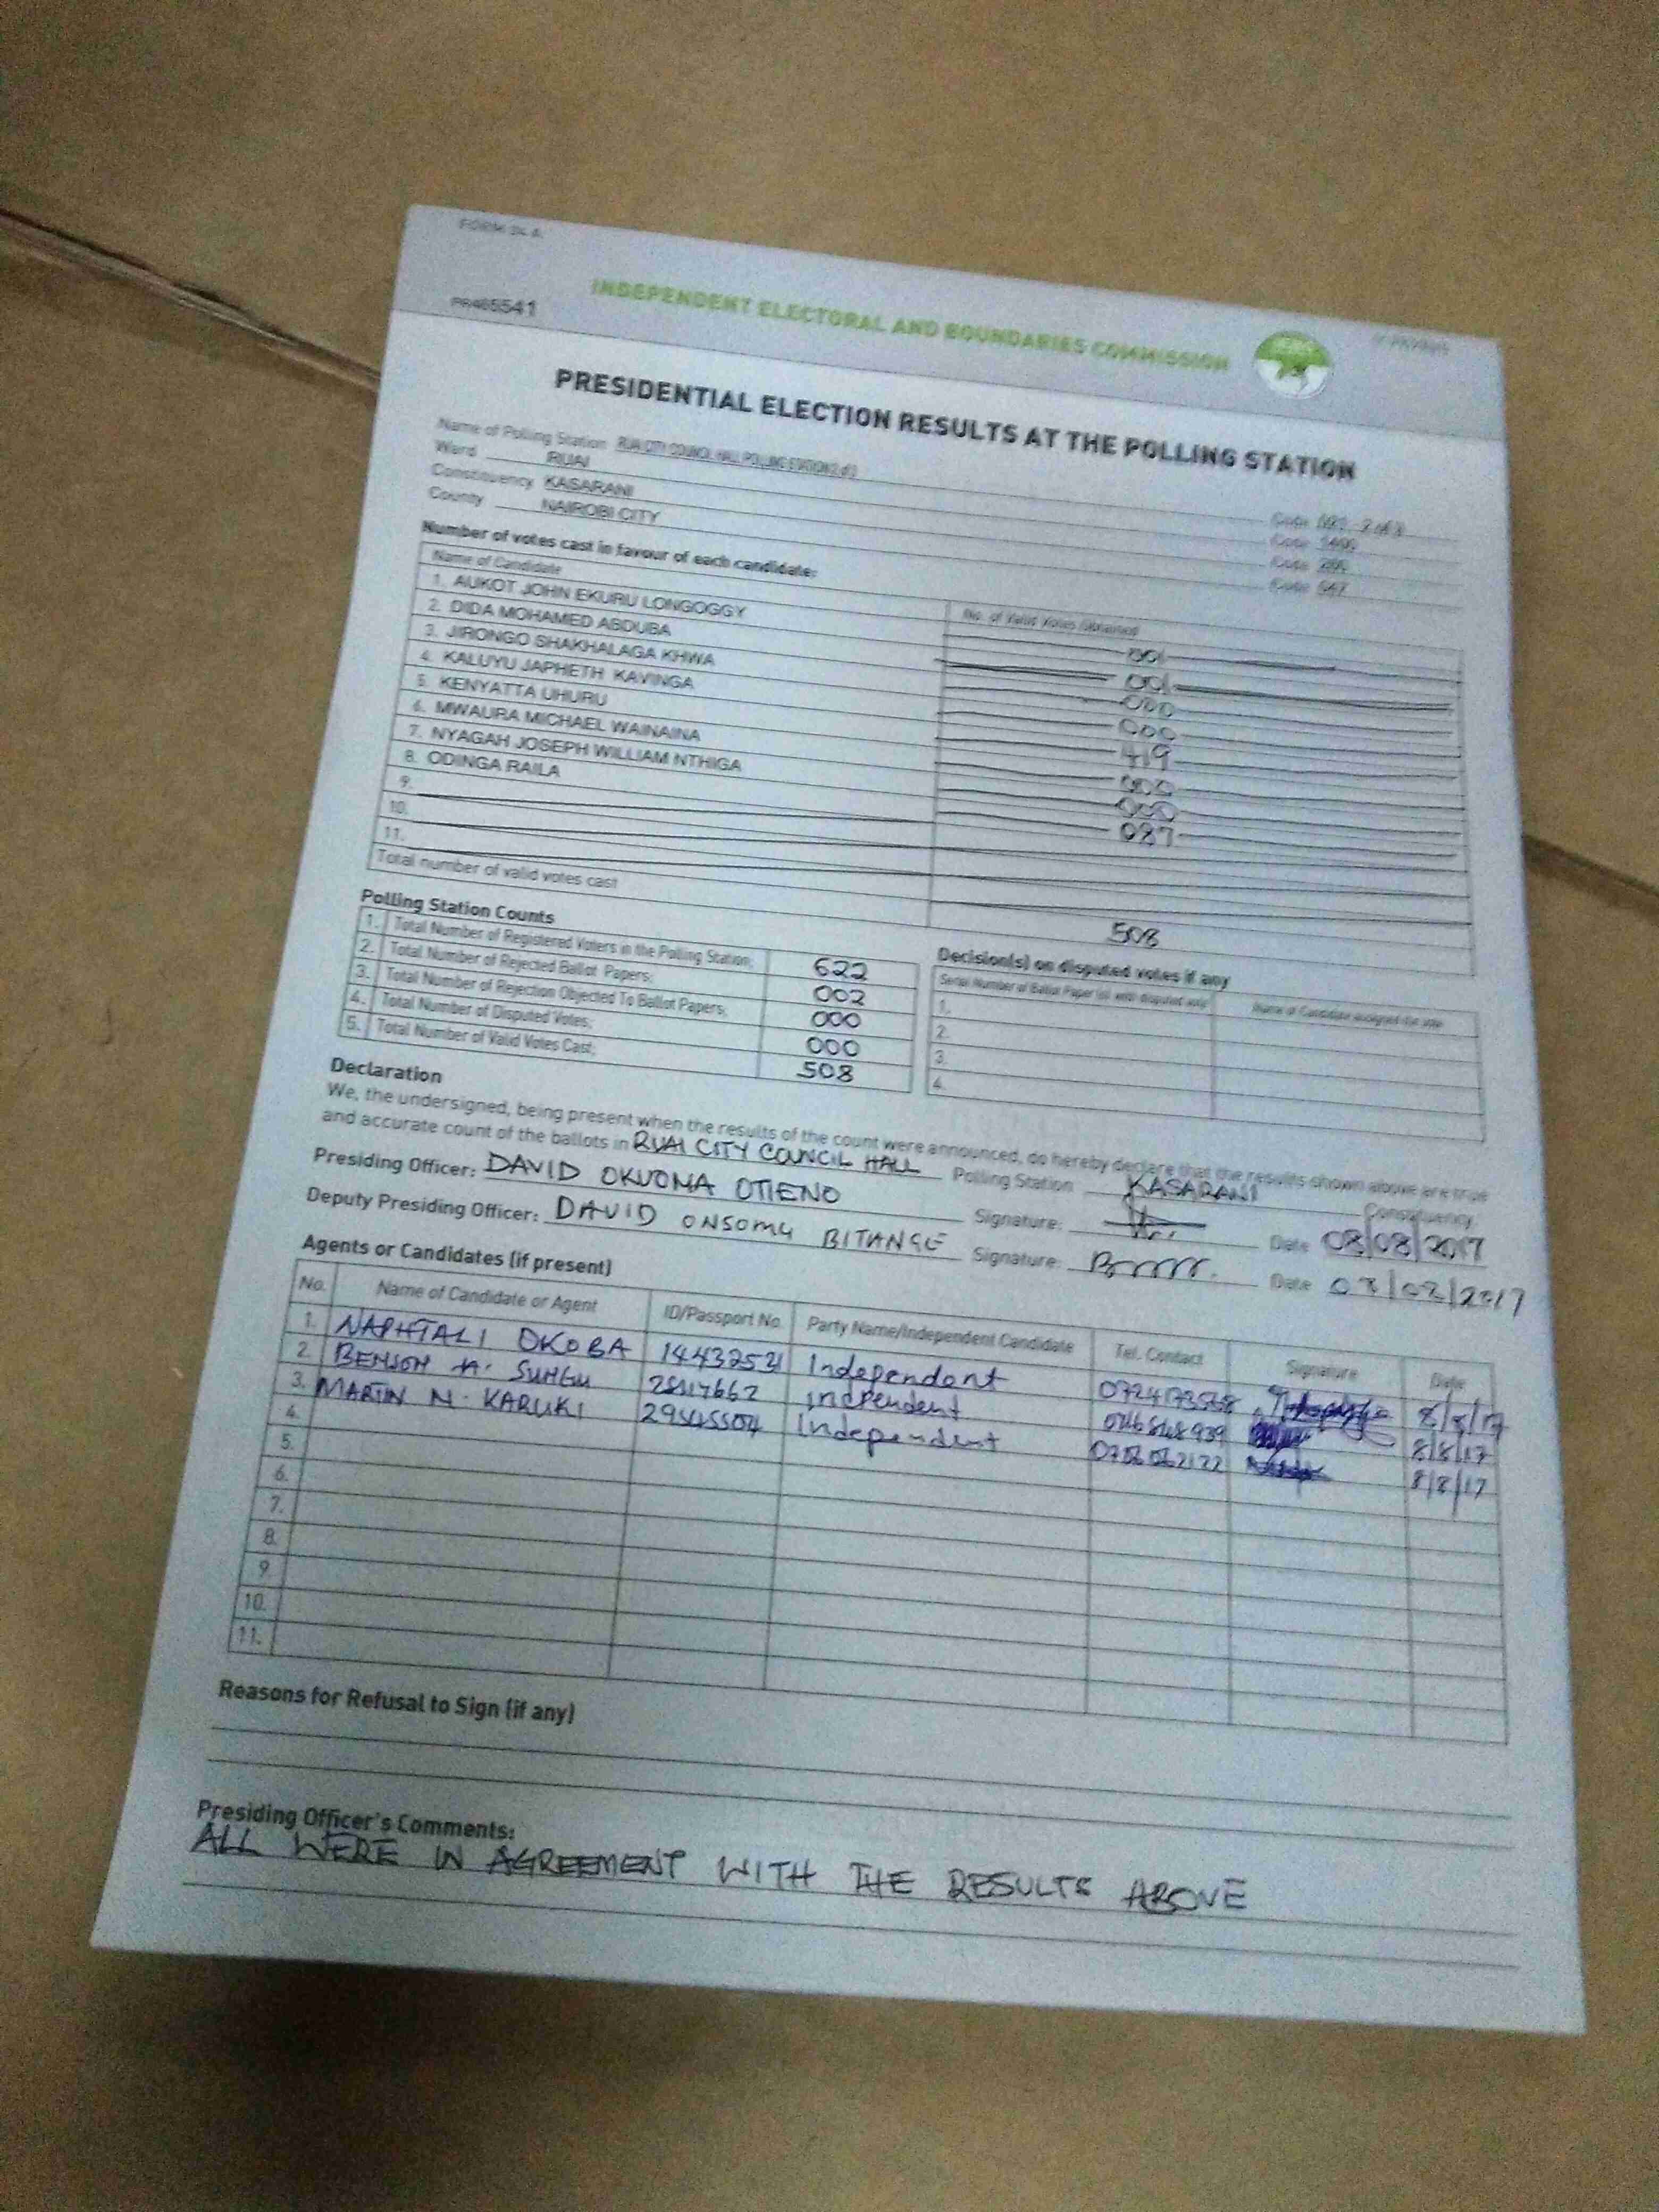 FORM 34 A
INDEPENDENT ELECTORAL AND BOUNDARIES COMMISSION
PRESIDENTIAL ELECTION RESULTS AT THE POLLING STATION
Name of Polling Station RUAI CITY COUNCIL HALL POLLING STATION
Ward RUAI Code
Constituency KASARANI Code
County NAIROBI CITY Code
Number of votes cast in favour of each candidate:
Name of Candidate No. of Valid Votes Obtained
1. AUKOT JOHN EKURU LONGOGGY 001
2. DIDA MOHAMED ABDUBA 001
3. JIRONGO SHAKHALAGA KHWA 000
4. KALUYU JAPHETH KAVINGA 000
5. KENYATTA UHURU 419
6. MWAURA MICHAEL WAINAINA 000
7. NYAGAH JOSEPH WILLIAM NTHIGA 000
8. ODINGA RAILA 087
9.
10.
11.
Total number of valid votes cast 508
Polling Station Counts
1. Total Number of Registered Voters in the Polling Station; 622
2. Total Number of Rejected Ballot Papers; 002
3. Total Number of Rejection Objected To Ballot Papers; 000
4. Total Number of Disputed Votes; 000
5. Total Number of Valid Votes Cast; 508
Decision(s) on disputed votes if any
Serial Number of Ballot Paper (s) with disputed vote Name of Candidate assigned the vote
1.
2.
3.
4.
Declaration
We, the undersigned, being present when the results of the count were announced, do hereby declare that the results shown above are true
and accurate count of the ballots in RUAI CITY COUNCIL HALL Polling Station KASARANI Constituency
Presiding Officer: DAVID OKUOMA OTIENO Signature: Date 08/08/2017
Deputy Presiding Officer: DAVID ONSOMU BITANGE Signature: Date
Agents or Candidates (if present)
No. Name of Candidate or Agent ID/Passport No. Party Name/Independent Candidate Tel. Contact Signature Date
1. NAPHTALI OKOBA Independent 8/8/17
2. BENSON A. SUNGU Independent 8/8/17
3. MARTIN N. KARUKI Independent 8/8/17
4.
5.
6.
7.
8.
9.
10.
11.
Reasons for Refusal to Sign (if any)
Presiding Officer's Comments:
ALL WERE IN AGREEMENT WITH THE RESULTS ABOVE